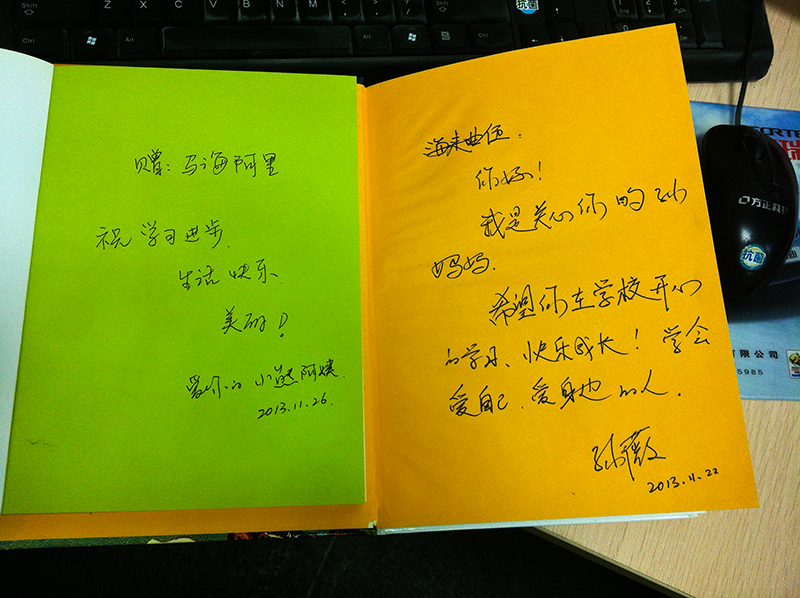 赠：马海阿里
祝 学习进步、
生活快乐、
美丽！
爱你的 小熊阿姨.
2013.11.26.
海来曲伍：
你好！
我是关心你的孙
妈妈.
希望你在学校开心
的学习、快乐成长！学会
爱自己、爱身边的人.
孙薇
2013.11.22
Shift
Z
X
C
V
B
N
M
Ctrl
Alt
Alt
Ctrl
抗菌
方正科技
抗菌
有限公司
5985